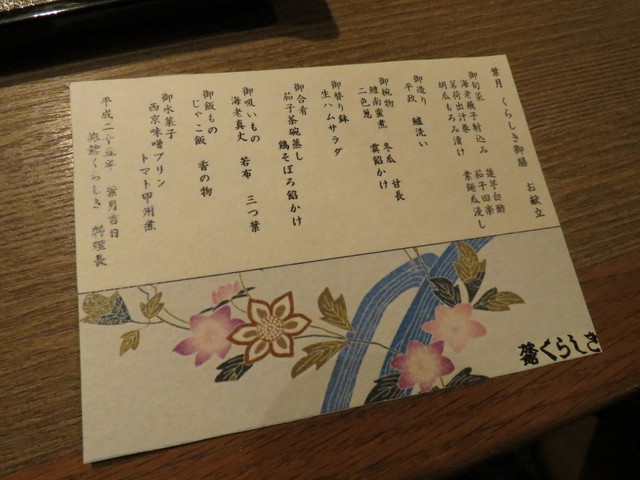 葉月 くらしき御膳 お献立
御旬菜 蓮芋白酢
海老薇子射込み 茄子田楽
茗荷出汁巻 素麺瓜浸し
胡瓜もろみ漬け
御造り
平政 鱧洗い
御椀物 冬瓜 甘長
鰻南蛮煮 雲餡かけ
二色葱
御替り鉢
生ハムサラダ
御合肴
茄子茶碗蒸し
鶏そぼろ餡かけ
御吸いもの
海老真丈 若布 三つ葉
御飯もの
じゃこ飯 香の物
御水菓子
西京味噌プリン
トマト甲州煮
平成二十五年 葉月吉日
くらしき 料理長
くらしき